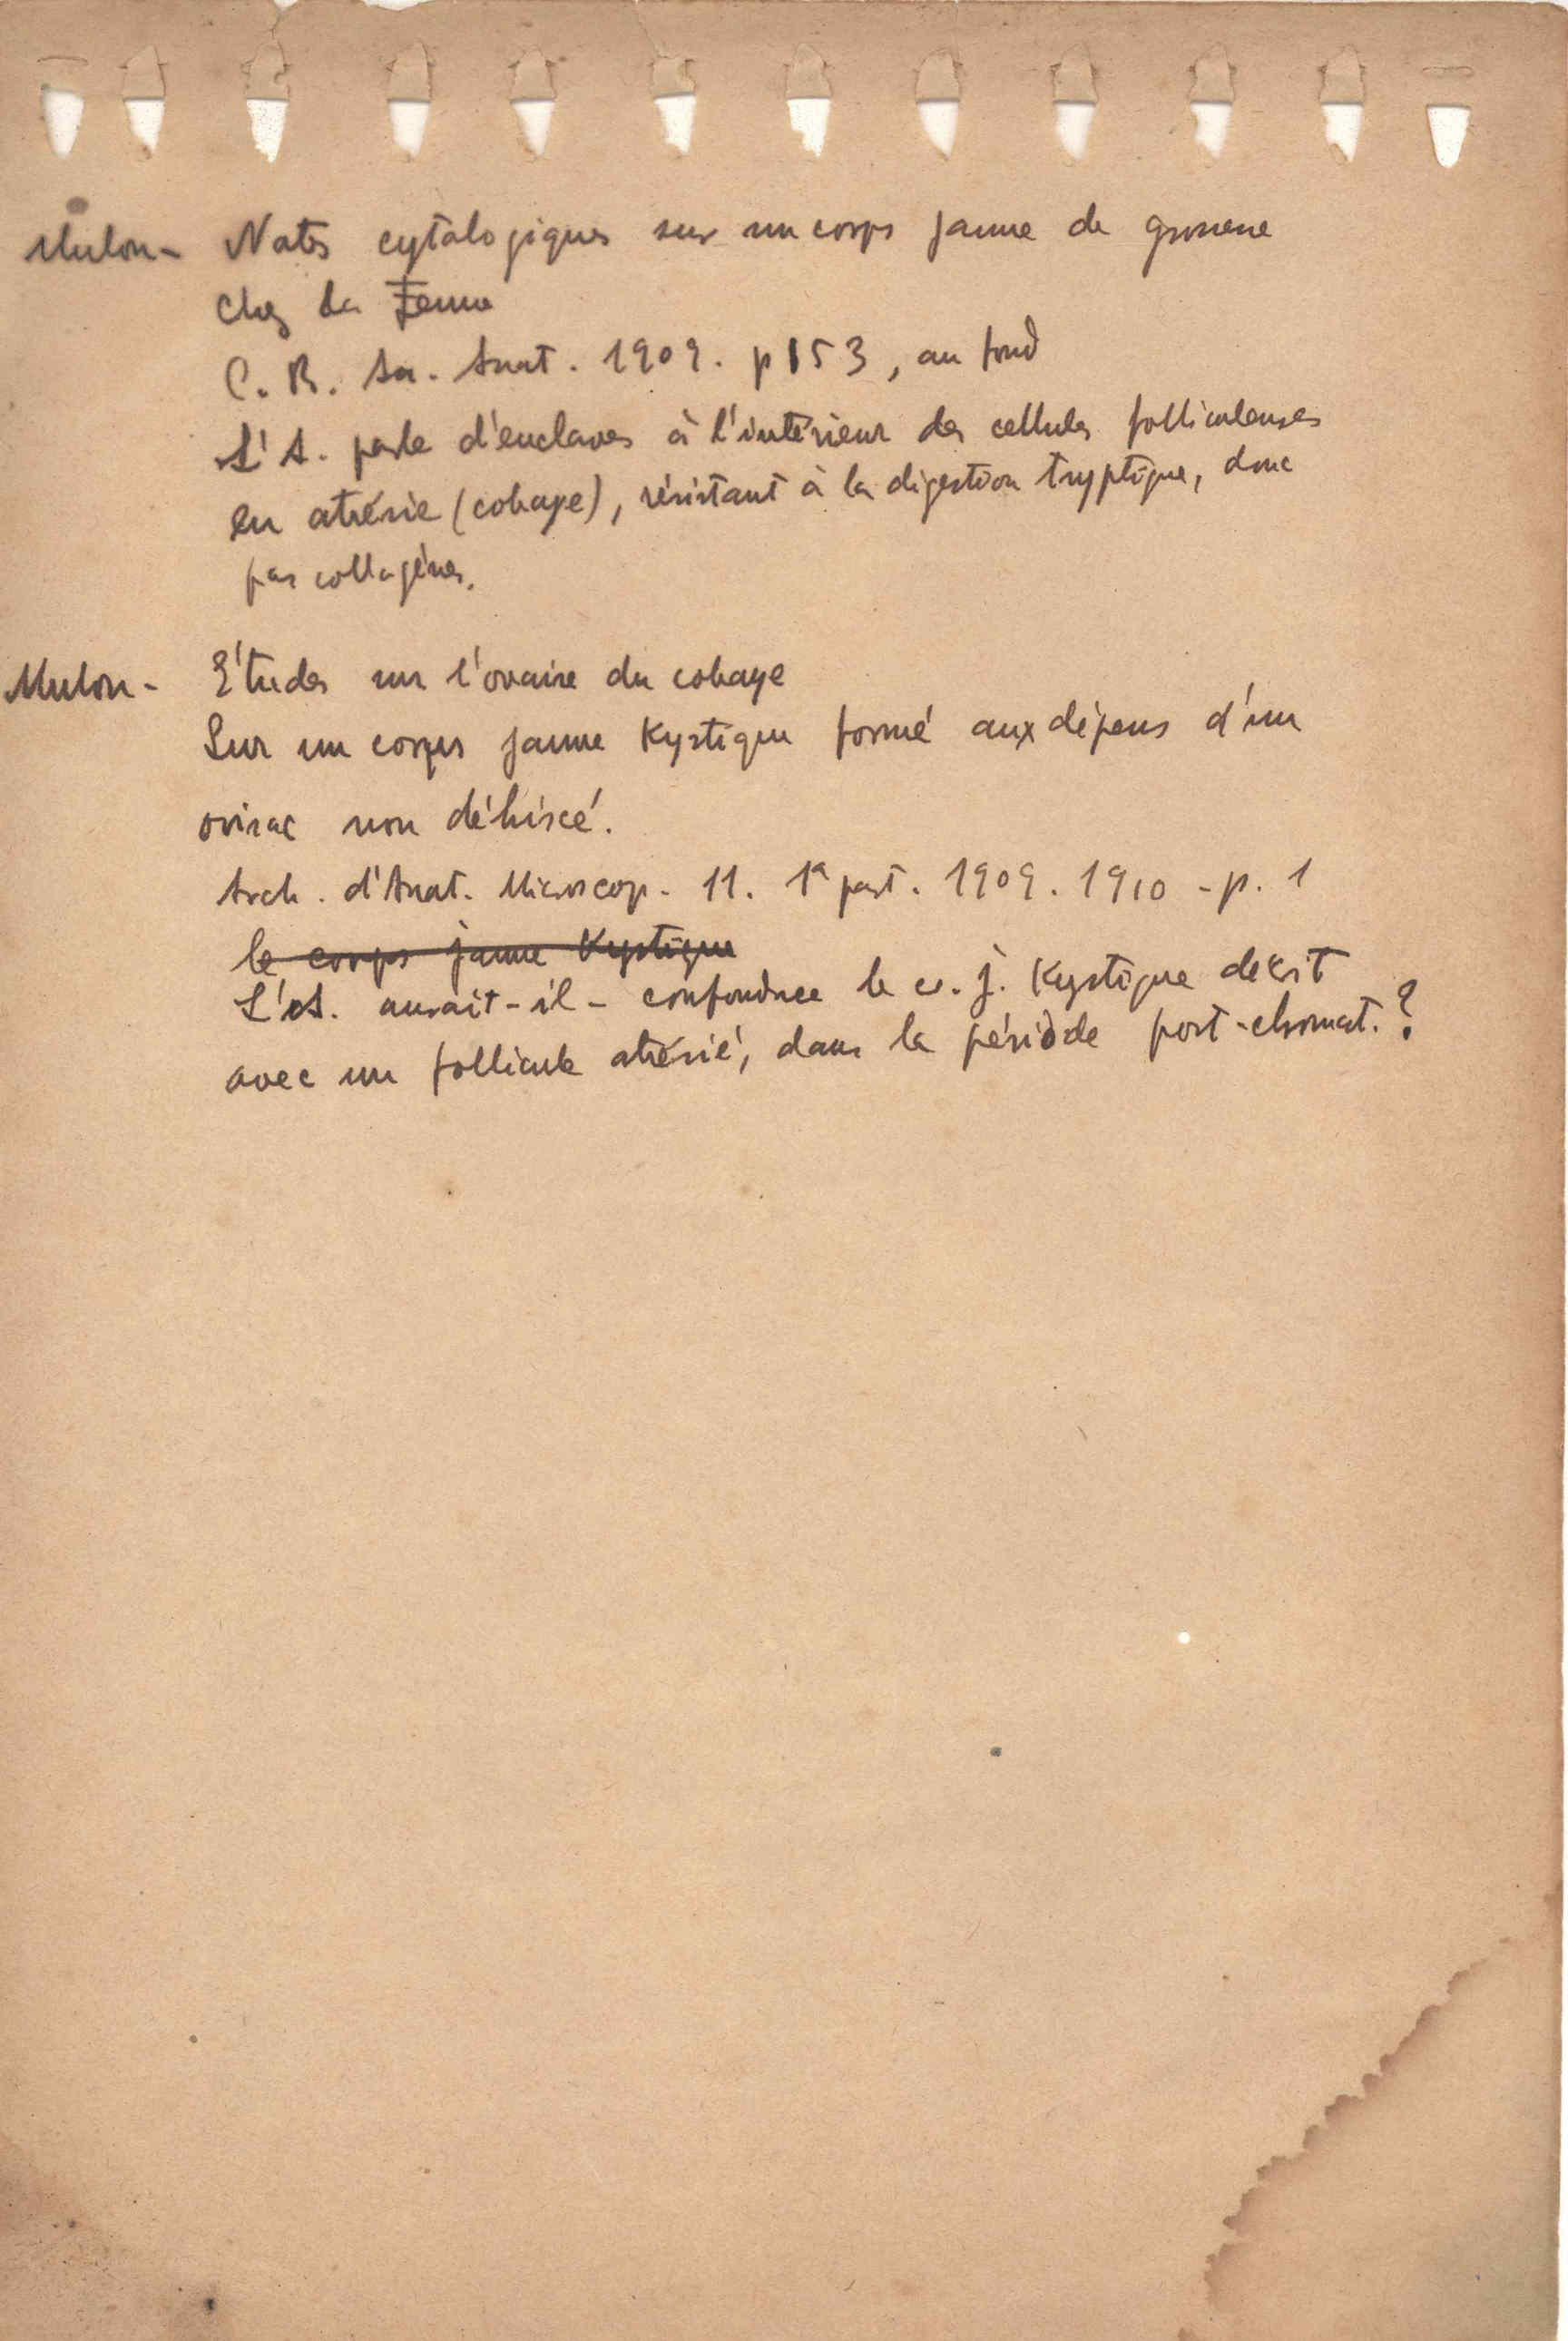 Mulon - Notes cytologiques sur un corps jaune de grossesse
chez la Femme
C. R. Ass. Anat. 1909. p 153, au fond
L'A. parle d'enclaves à l'intérieur des cellules folliculeuses
en atrésie (cobaye), résistant à la digestion tryptique, donc
pas collagènes.
Mulon - Études sur l'ovaire du cobaye
Sur un corps jaune Kystique formé aux dépens d'un
ovisac non déhiscé.
Arch. d'Anat. Microscop. 11. 1ª part. 1909. 1910 - p. 1
le corps jaune Kystique
L'A. aurait-il - confondu le c. j. Kystique décrit
avec un follicule atrésié, dans la période post-chromat.?